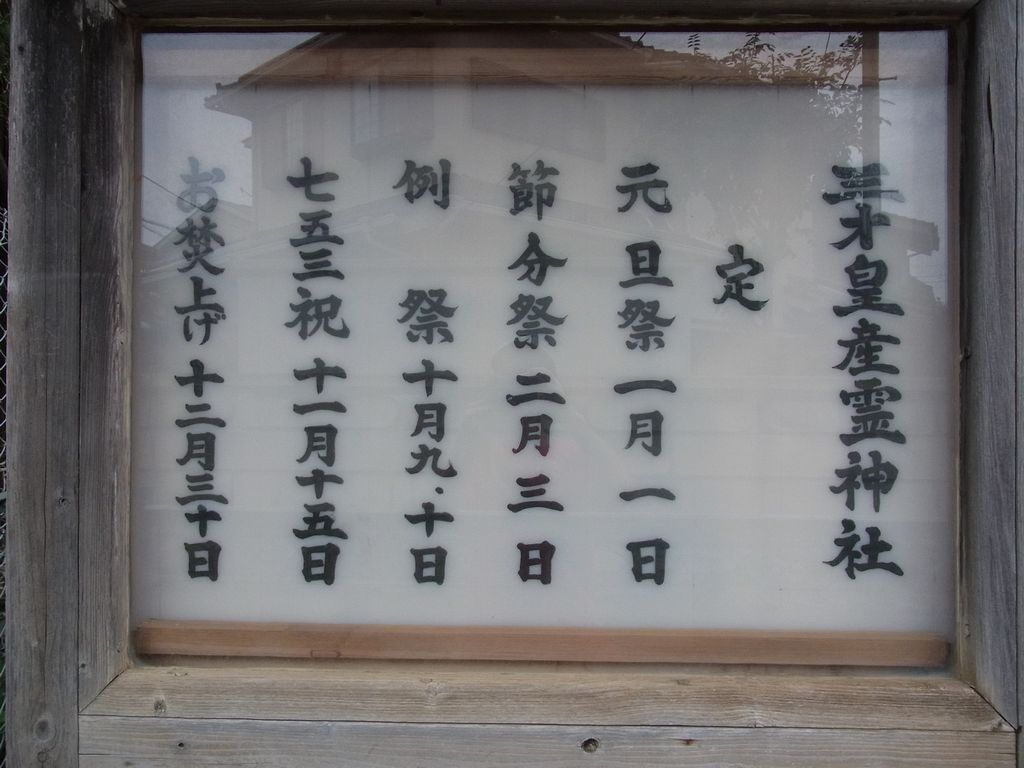 三才皇産霊神社
定
元旦祭 一月一日
節分祭 二月三日
例 祭 十月九・十日
七五三祝 十一月十五日
お焚上げ 十二月三十日